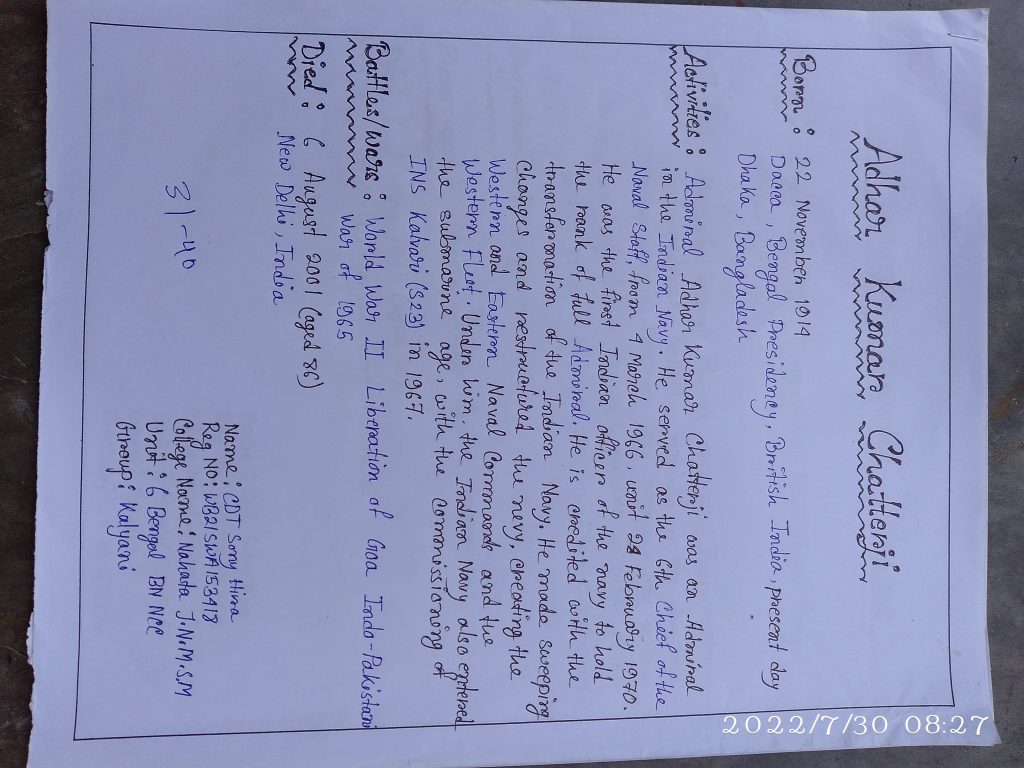 Adhar Kumar Chatterji
Born : 22 November 1914
Dacca, Bengal Presidency, British India, present day
Dhaka, Bangladesh
Activities : Admiral Adhar Kumar Chatterji was an Admiral
in the Indian Navy. He served as the 6th Chief of the
Naval Staff from 4 March 1966, unit 28 February 1970.
He was the first Indian officer of the navy to hold
the rank of full Admiral. He is credited with the
transformation of the Indian Navy. He made sweeping
changes and restructured the navy, creating the
Western and Eastern Naval Commands and the
Western Fleet. Under him, the Indian Navy also entered
the submarine age, with the commissioning of
INS Kalvari (S23) in 1967.
Battles/Wars : World War II Liberation of Goa Indo-Pakistani
War of 1965
Died : 6 August 2001 (aged 86)
New Delhi, India
31-40
Name : CDT Somy Hira
Reg NO : WB21SWA153418
College Name : Nahata J.N.M.S.M
Unit : 6 Bengal BN NCC
Group : Kalyani
2022/7/30 08:27